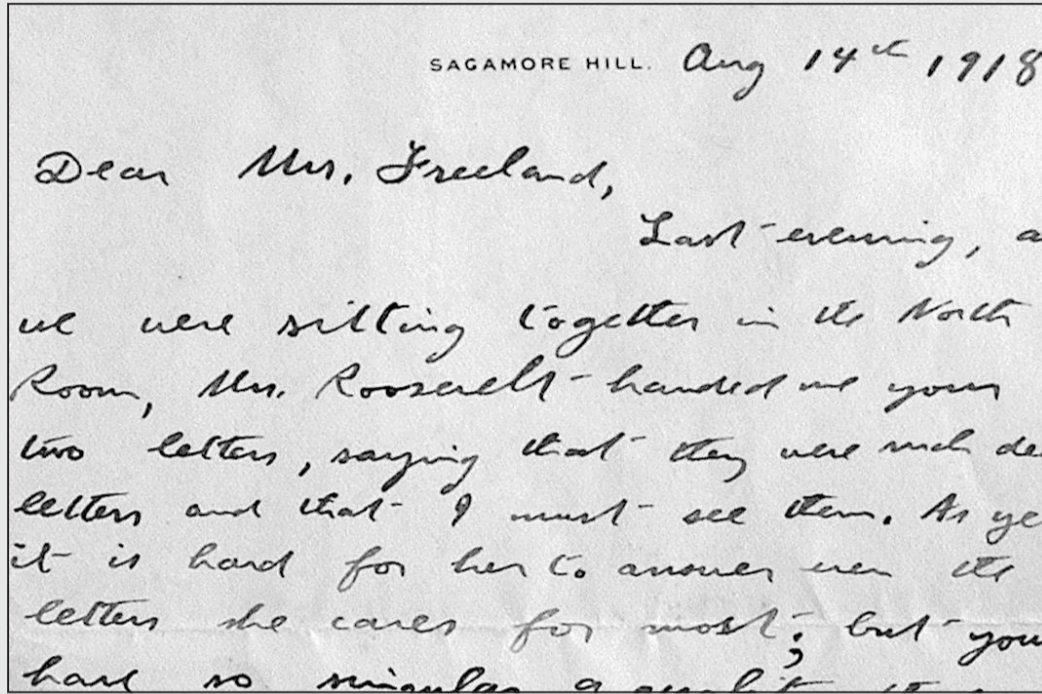 SAGAMORE HILL. Aug 14th 1918
Dear Mrs. Freeland,
Last evening, a
we were sitting together in the North
Room, Mrs. Roosevelt handed me your
two letters, saying that they were such de
letters and that I must see them. As ye
it is hard for her to answer even the
letters she cares for most; but you
have so singular a quality